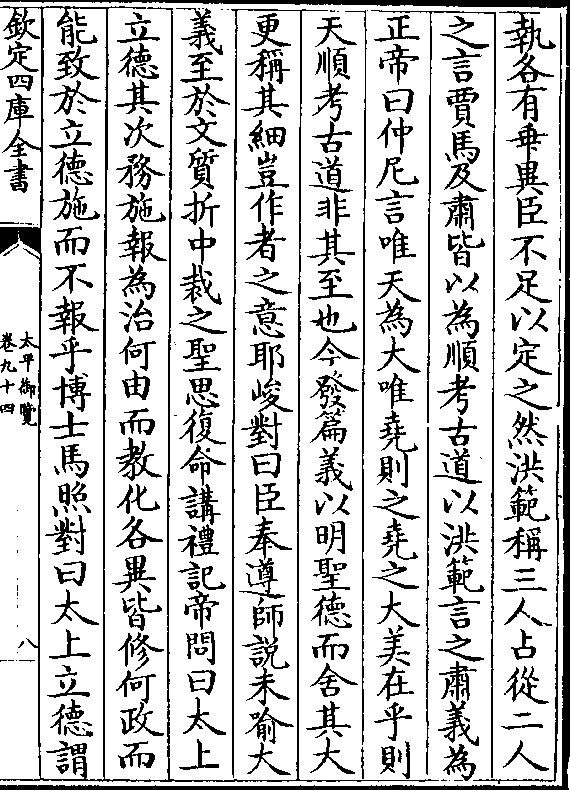 執各有乖異臣不足以定之然洪範稱三人占從二人
之言賈馬及肅皆以為順考古道以洪範言之肅義為
正帝曰仲尼言唯天為大唯堯則之堯之大美在乎則
天順考古道非其至也今發篇義以明聖德而舍其大
更稱其細豈作者之意耶峻對曰臣奉遵師說未喻大
義至於文質折中裁之聖思復命講禮記帝問曰太上
立德其次務施報為治何由而教化各異皆修何政而
能致於立德施而不報乎博士馬照對曰太上立德謂
欽定四庫全書
太平御覽
卷九十四
八